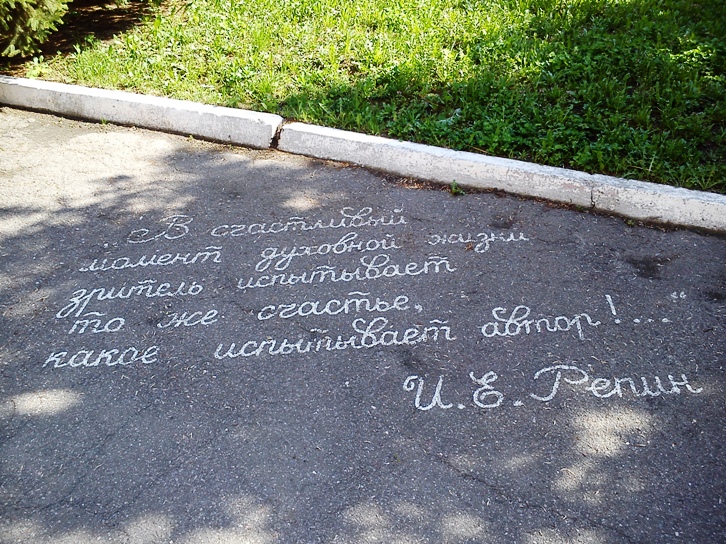 „В счастливый
момент духовной жизни
зритель испытывает
то же счастье,
какое испытывает автор!..."
И.Е. Репин